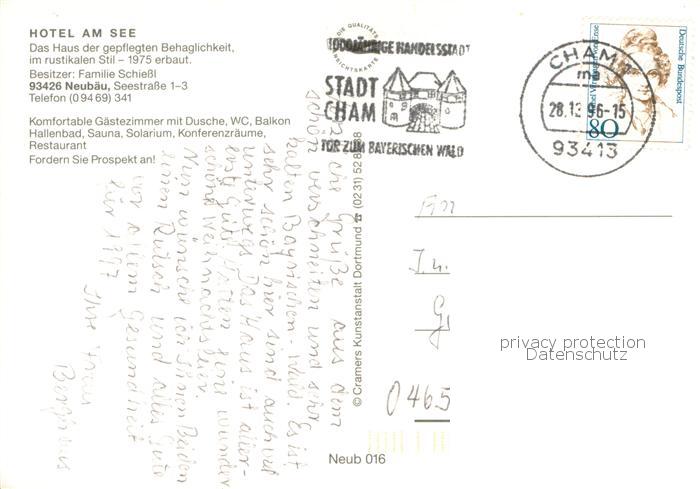 HOTEL AM SEE
Das Haus der gepflegten Behaglichkeit,
im rustikalen Stil – 1975 erbaut.
Besitzer: Familie Schießl
93426 Neubäu, Seestraße 1–3
Telefon (09469) 341
Komfortable Gästezimmer mit Dusche, WC, Balkon
Hallenbad, Sauna, Solarium, Konferenzräume,
Restaurant
Fordern Sie Prospekt an!
DIE QUALITÄTS
1000JÄHRIGE HANDELSSTADT
STADT
CHAM
TOR ZUM BAYERISCHEN WALD
CHAM 1
ma
28.12.96-15
93413
Deutsche Bundespost
80
Grüße aus dem
schön verschneiten und sehr
kalten Bayrischen-Wald. Es ist
sehr schön hier sind auch viel
unterwegs Das Haus ist aller-
erste Güte hatten eine wunder
schöne Weihnachtsfeier.
Nun wünsche ich Ihnen Beiden
einen Rutsch und alles Gute
vor allem Gesundheit
für 1997
Ihre Frau
Berghaus
© Cramers Kunstanstalt Dortmund ☎ (0231) 528
An
0465
Neub 016
privacy protection
Datenschutz